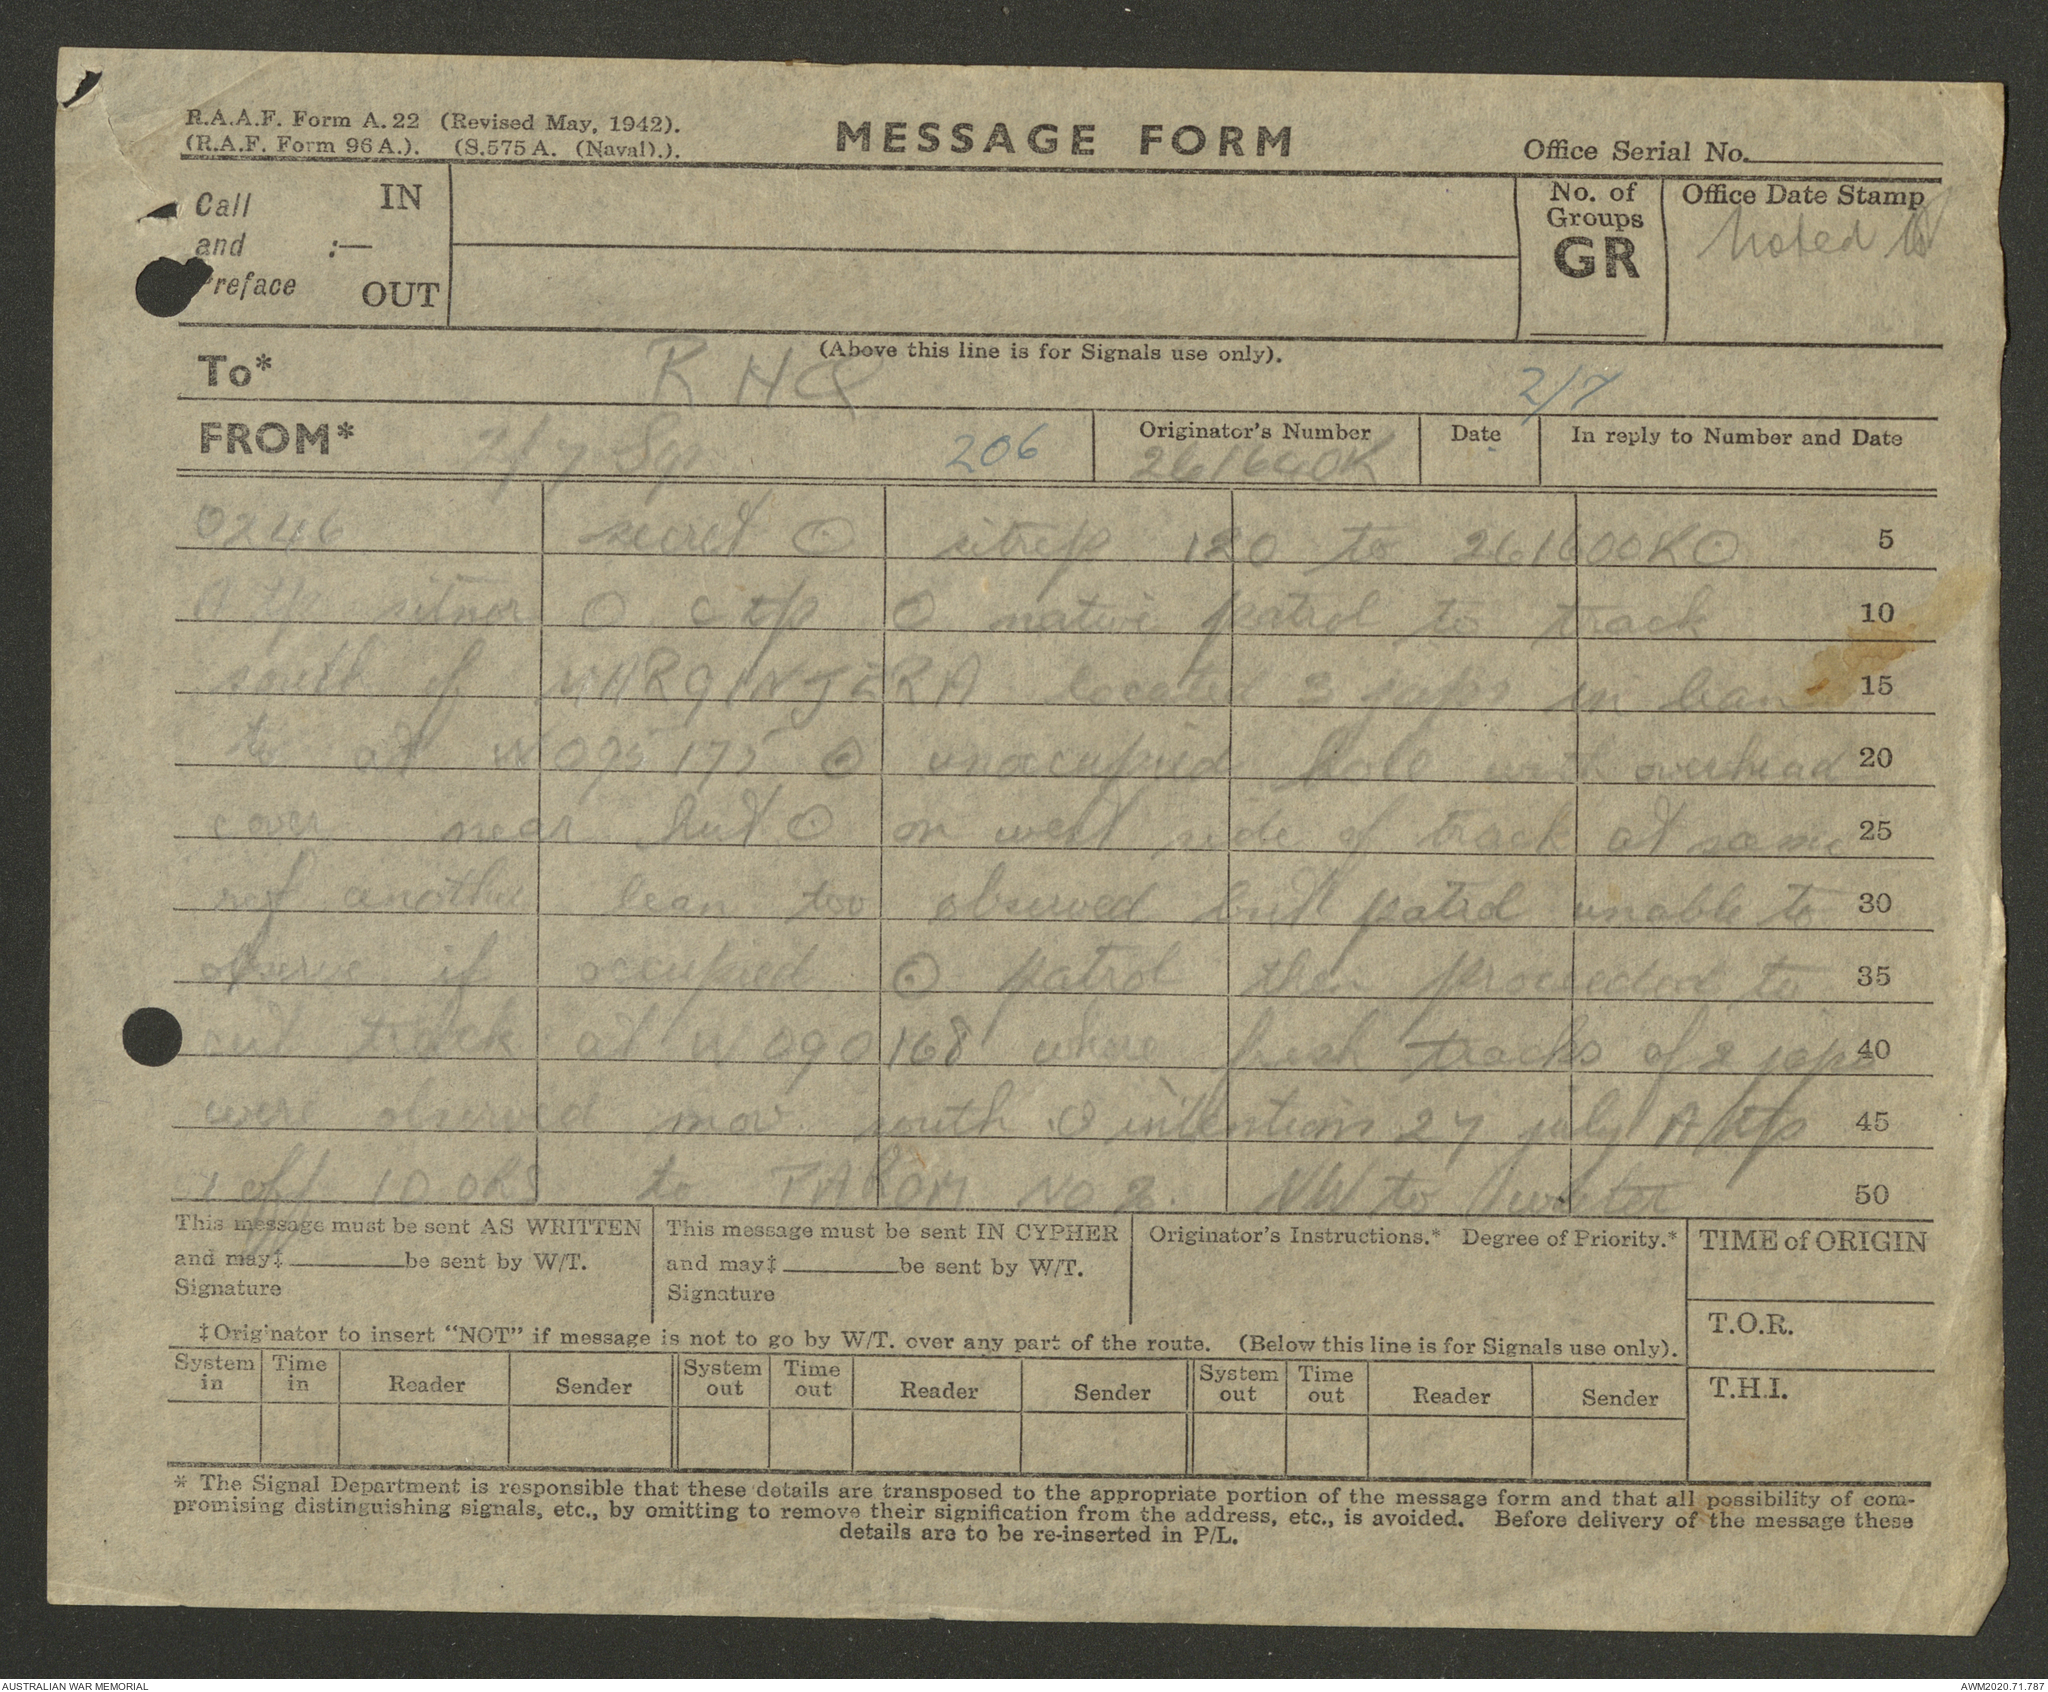 R.A.A.F. Form A.22 (Revised May, 1942).
(R.A.F. Form 96A.). (S.575A. (Naval).).
MESSAGE FORM
Office Serial No.
Call
and :—
Preface
IN
OUT
No. of
Groups
GR
Office Date Stamp
Noted
(Above this line is for Signals use only).
To* R H Q
2/7
FROM* 2/7 Sqn 206
Originator's Number
261640K
Date
In reply to Number and Date
0246 secret ⊙ sitrep 120 to 261600K ⊙ 5
A tp sitnor ⊙ C tp ⊙ native patrol to track 10
south of located 3 japs in lean 15
to at W095175 ⊙ unoccupied hole with overhead 20
cover near hut ⊙ on west side of track at same 25
ref another lean too observed but patrol unable to 30
observe if occupied ⊙ patrol then proceeded to 35
cut track at W090168 where fresh tracks of 2 japs 40
were observed mov south ⊙ intentions 27 july A tp 45
1 off 10 ohs to No 2. NW to water 50
This message must be sent AS WRITTEN
and may‡ be sent by W/T.
Signature
This message must be sent IN CYPHER
and may‡ be sent by W/T.
Signature
Originator's Instructions.* Degree of Priority.*
TIME of ORIGIN
T.O.R.
T.H.I.
‡Originator to insert "NOT" if message is not to go by W/T. over any part of the route. (Below this line is for Signals use only).
System in Time in Reader Sender System out Time out Reader Sender System out Time out Reader Sender
* The Signal Department is responsible that these details are transposed to the appropriate portion of the message form and that all possibility of com-
promising distinguishing signals, etc., by omitting to remove their signification from the address, etc., is avoided. Before delivery of the message these
details are to be re-inserted in P/L.
AUSTRALIAN WAR MEMORIAL
AWM2020.71.787